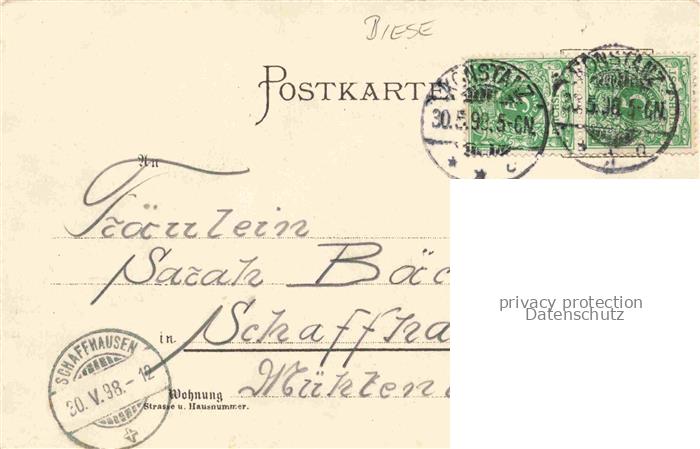 BIESE
POSTKARTE
KONSTANZ
30.5.98.5-6N.
* * c
KONSTANZ
30.5.98.5-6N.
5
An
Fräulein
Sarah Bäc
in Schaffha
Wohnung
Strasse u. Hausnummer.
SCHAFFHAUSEN
30.V.98.-12
privacy protection
Datenschutz